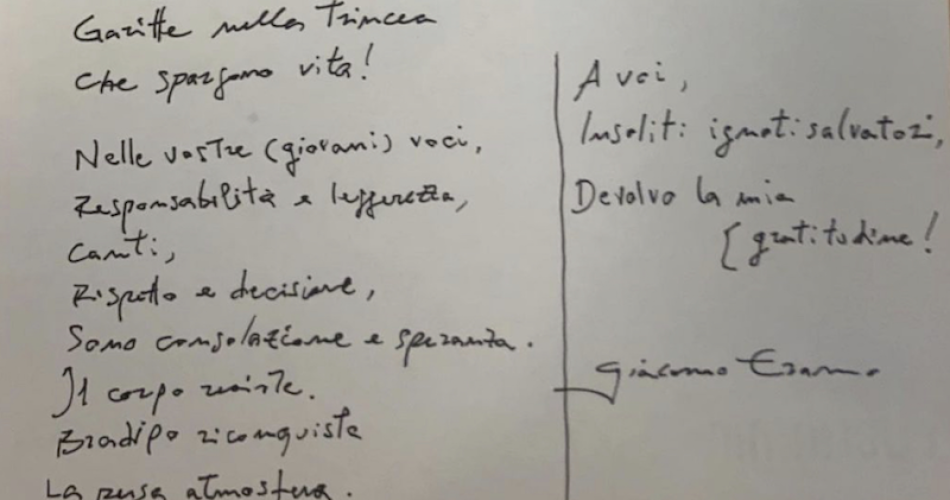 Garitte nella Trincea
che spargono vita!
Nelle vostre (giovani) voci,
Responsabilità e leggerezza,
Canti,
Rispetto e decisione,
Sono consolazione e speranza.
Il corpo resiste.
Bradipo riconquista
La resa atmosfera.
A voi,
Insoliti ignoti salvatori,
Devolvo la mia
[gratitudine!
Giacomo